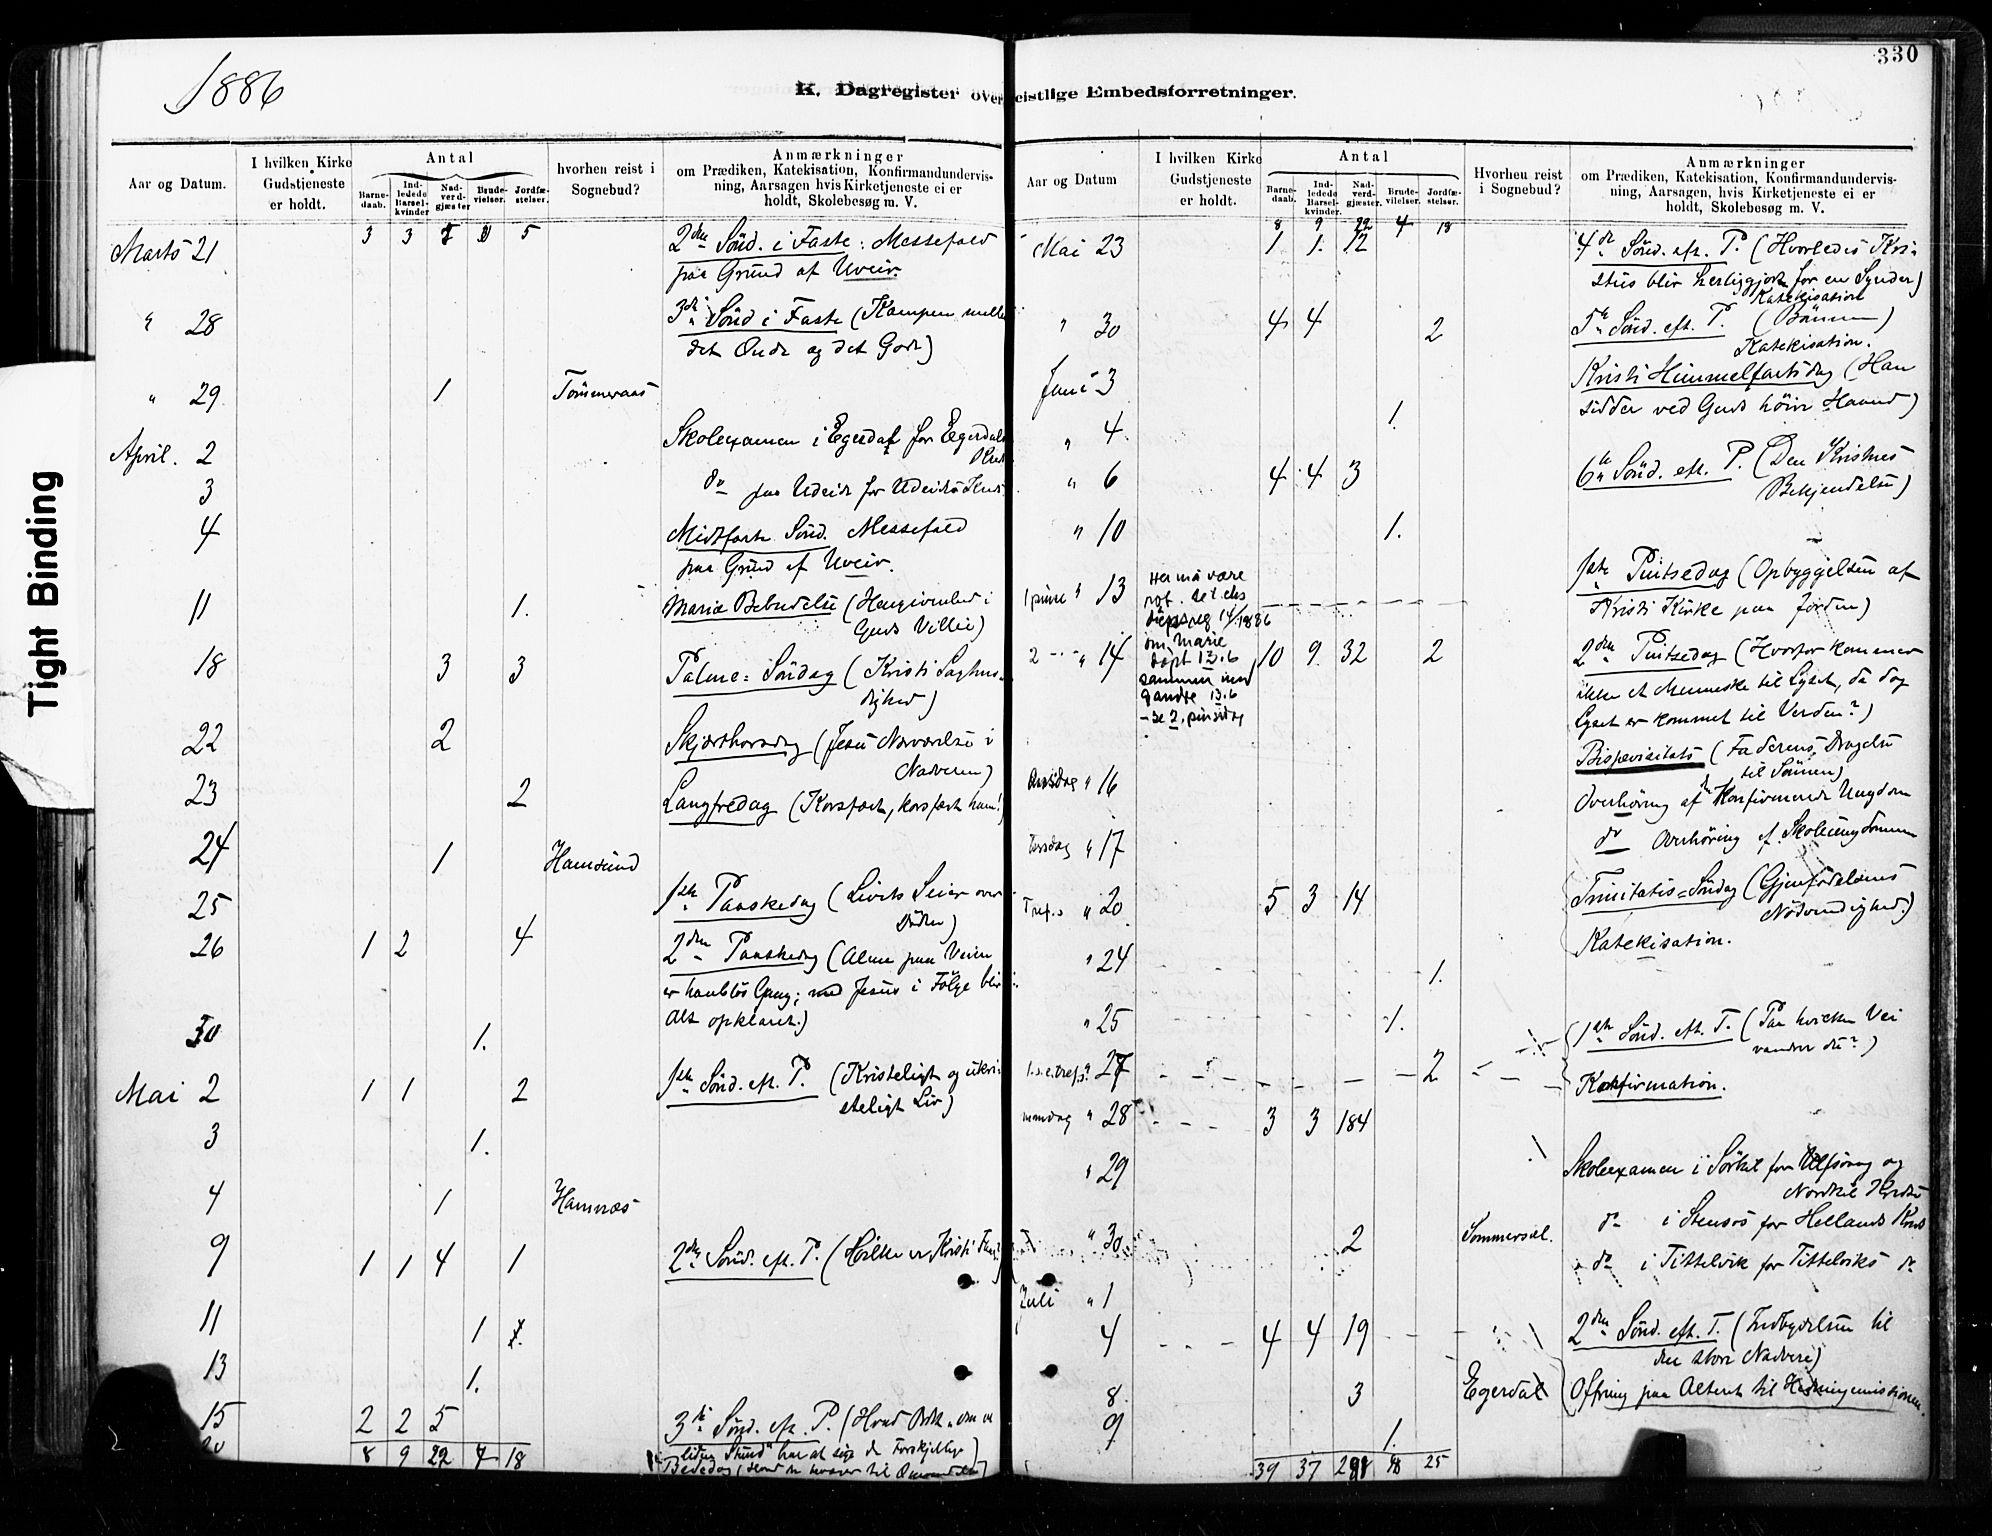 330
1886
K. Dagregister over geistlige Embedsforretninger.
Tight Binding
Aar og Datum.
I hvilken Kirke Gudstjeneste er holdt.
Antal
Barnedaab.
Indledede Barselkvinder
Nadverdgjæster
Brudevielser.
Jordfæstelser.
hvorhen reist i Sognebud?
Anmærkninger
om Prædiken, Katekisation, Konfirmandundervisning, Aarsagen hvis Kirketjeneste ei er holdt, Skolebesøg m. V.
3 3 5
Marts 21 2den Sönd. i Faste: Messefald
paa Grund af Uveir.
" 28 3die Sönd i Faste (Kampen melle
det Onde og det Gode)
" 29 1 Tömmeraas
April. 2 Skoleexamen i Egerdal for Egerdals
Kreds
3 do paa Udeide for Udeides Kreds
4 Midfaste Sönd. Messefald
paa Grund af Uveir.
11 1. Mariæ Bebudelse (Hengivenhed i
Guds Villie)
18 3 3 Palme=Söndag (Kristi Sagtmodighed)
22 2 Skjærthorsdag (Jesu Nærværelse i
Nadveren)
23 2 Langfredag (Korsfæst, korsfæst ham!)
24 1 Hamsund
25 1ste Paaskedag (Livets Seier over
Döden)
26 1 2 4 2den Paaskedag (Alene paa Veien
er haabløs Gang; med Jesus i Fölge blir
Alt opklaret.)
30 1.
Mai 2 1 1 2 1ste Sönd. eft. P. (Kristeligt og ukristeligt Liv)
3 1.
4 1 Hamnæs
9 1 1 4 1 2den Sönd. eft. P. (Hvilke er Kristi Faar?)
11 1
13 1.
15 2 2 5 3die Sönd. eft. P. (Hvad Ordet "om en
liden Stund" har at sige de Forskjellige)
8 9 22 7 18 Bededag
Aar og Datum
I hvilken Kirke Gudstjeneste er holdt.
Antal
Barnedaab.
Indledede Barselkvinder.
Nadverdgjæster.
Brudevielser.
Jordfæstelser.
Hvorhen reist i Sognebud?
Anmærkninger
om Prædiken, Katekisation, Konfirmandundervisning, Aarsagen, hvis Kirketjeneste ei er holdt, Skolebesøg m. V.
8 9 22 4 18
Mai 23 1 1. 12 4de Sönd. eft. P. (Hvorledes Kristus blir herliggjort for en Synder)
Katekisation
" 30 4 4 2 5te Sönd. eft. P. (Bönnen)
Katekisation.
Juni 3 Kristi Himmelfartsdag (Han
sidder ved Guds höire Haand)
" 4. 1.
" 6 4 4 3 6te Sönd. eft. P. (Den Kristnes
Bekjendelse)
" 10 1.
1 pinse " 13 Her må være
1ste Pintsedag (Opbyggelsen af
Kristi Kirke paa Jorden)
14/1886
om Marie
døpt 13.6
sammen med
9 andre 13.6
- se 2. pinsedag
2 - " - " 14 10 9 32 2 2den Pintsedag (Hvorfor kommer
ikke et Menneske til Lyset, da dog
Lyset er kommet til Verden?)
Bispevisitats (Faderens Dragelse
til Sönnen)
Onsdag " 16 Overhöring af Konfirmerede Ungdom
Torsdag " 17 do Overhöring af Skoleungdommen
Tref.s " 20 5 3 14 Trinitatis=Söndag (Gjenfödelsens
Nödvendighed.)
Katekisation.
" 24 1.
" 25 1. 1ste Sönd. eft. T. (Paa hvilken Vei
vandrer du?)
1.s.e.tref.s 27 2 Konfirmation.
mandag " 28 3 3 184
" 29 Skoleexamen i Sörkil for Ulfsvaag og
Nordkil Kredse
" 30 2 Sommersæl. do i Stensös for Hellands Kreds
Juli " 1 do i Tittelvik for Tittelviks do
4 4 4 19 2den Sönd. eft. T. (Indbydelsen til
den store Nadvere)
8. 3 Egerdal Ofring paa Alteret til Hedningemissionen.
9 1.
39 37 25